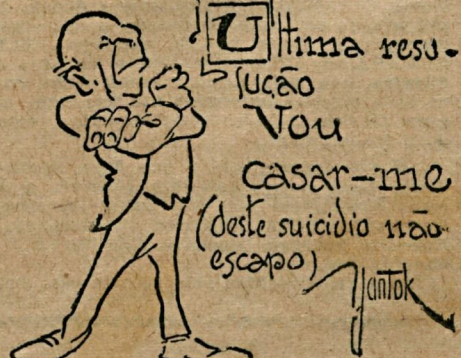 Ultima resu-
lução
Vou
casar-me
(deste suicidio não
escapo)
Yantok